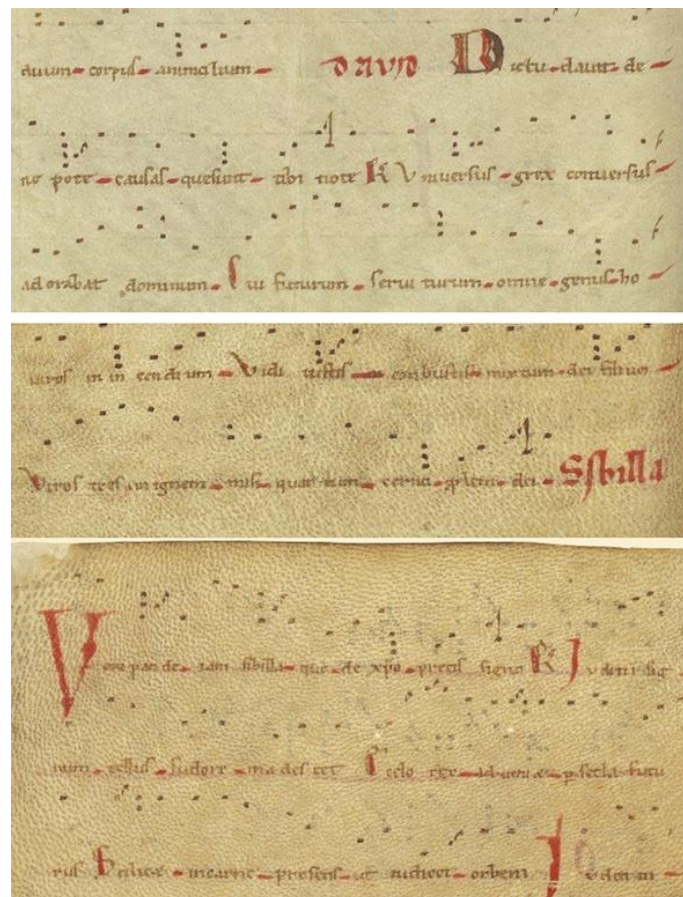 duum corpus animalium DAVID Dic tu david de
ne pote causas que sunt tibi note R Universus grex conversus
adorabat dominum Cui futurum servi turum omne genus ho
viros in in cendi um Vidi iustis in conbustis mixtum dei filium
Viros tres in ignem misi quar tum cerno plem dei Sibilla
Vere pan de iam sibilla que de xpo precis signa R Judicii sig
num tellus sudore ma des cet E celo rex ad veniet p secla futu
rus Scilicet incarne presens ut iudicet orbem Judea in